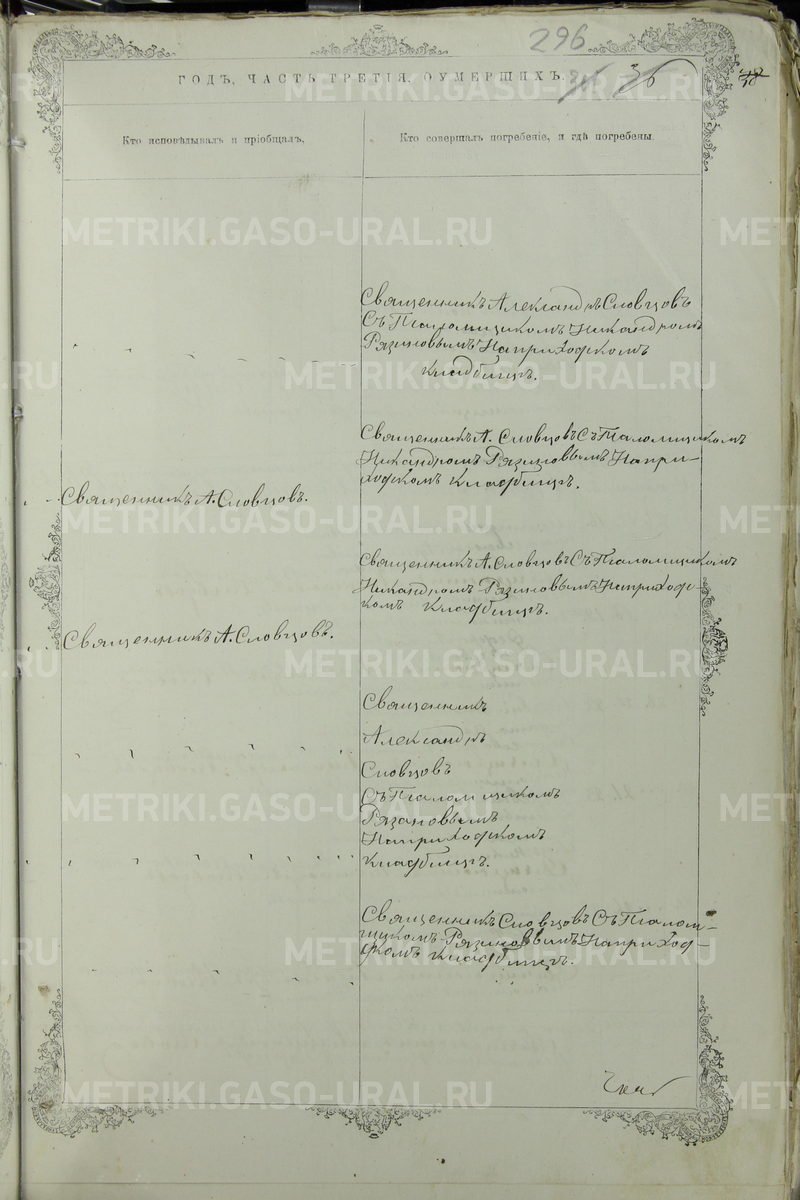 296
ГОДЪ, ЧАСТЬ ТРЕТІЯ, О УМЕРШИХЪ.
36
Кто исповѣдывалъ и пріобщалъ.
Кто совершалъ погребеніе, и гдѣ погребены.
Священникъ Александръ Словцовъ
Съ Псаломщикомъ Никандромъ
Рязановымъ На приходскомъ
кладбищѣ.
Священникъ А. Словцовъ Съ Псаломщикомъ
Никандромъ Рязановымъ На при-
ходскомъ кладбищѣ.
Священникъ А. Словцовъ.
Священникъ А. Словцовъ Съ Псаломщикомъ
Никандромъ Рязановымъ На приходс-
комъ кладбищѣ.
Священникъ А. Словцовъ.
Священникъ
Александръ
Словцовъ
Съ Псаломщикомъ
Рязановымъ
На приходскомъ
кладбищѣ.
Священникъ Словцовъ Съ Псалом-
щикомъ Рязановымъ На приход-
скомъ кладбищѣ.
METRIKI.GASO-URAL.RU